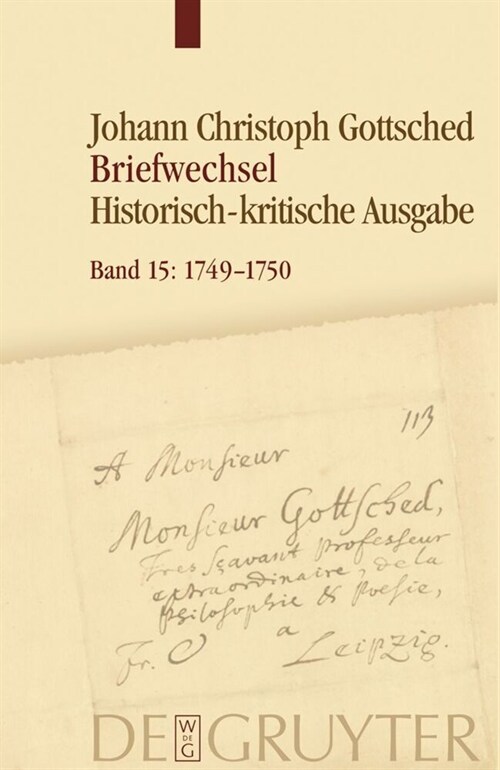 Johann Christoph Gottsched
Briefwechsel
Historisch-kritische Ausgabe
Band 15: 1749–1750
113
A Monsieur
Monsieur Gottsched,
Tres sçavant Professeur
extraordinaire, de la
Philosophie & Poesie,
a
Fr. O Leipzig.
DE W DE G GRUYTER